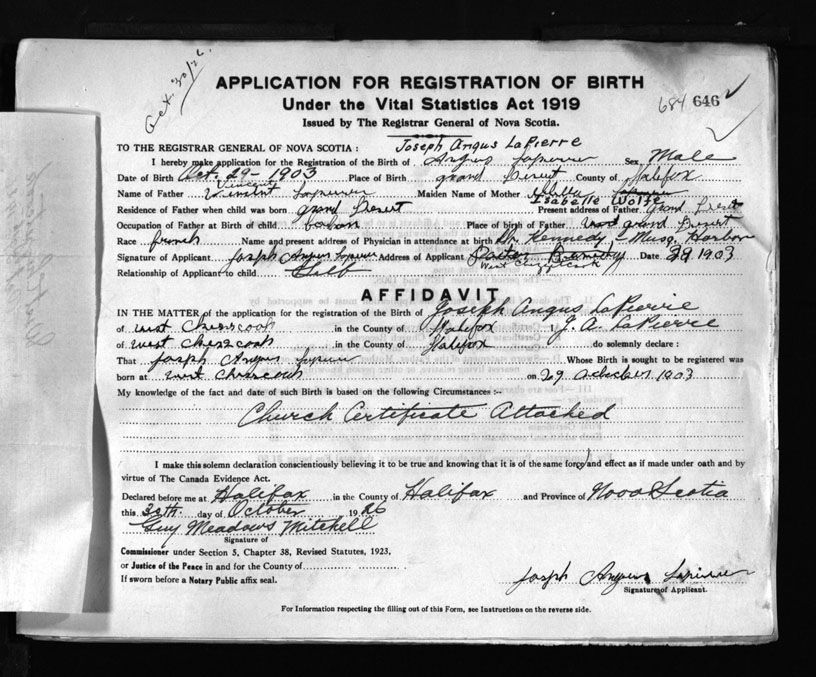 Oct. 30/26
APPLICATION FOR REGISTRATION OF BIRTH
Under the Vital Statistics Act 1919
684 646
Issued by The Registrar General of Nova Scotia.
Joseph Angus LaPierre
TO THE REGISTRAR GENERAL OF NOVA SCOTIA:
I hereby make application for the Registration of the Birth of Angus Lapierre Sex Male
Date of Birth Oct. 29 - 1903 Place of Birth grand Desert County of Halifax
Vincent
Name of Father Vincent Lapierre Maiden Name of Mother
Isabelle Wolfe
Residence of Father when child was born grand Desert Present address of Father Grand Desert
Occupation of Father at Birth of child Place of birth of Father grand Desert
Race french Name and present address of Physician in attendance at birth Dr. Kennedy, Musq. Harbor
Signature of Applicant Joseph Angus Lapierre Address of Applicant Date 29 1903
West Chezzetcook
Relationship of Applicant to child Self
AFFIDAVIT
IN THE MATTER of the application for the registration of the Birth of Joseph Angus LaPierre
of west Chezzcook in the County of Halifax I J. A. LaPierre
of west Chezzcook in the County of Halifax do solemnly declare:
That Joseph Angus Lapierre Whose Birth is sought to be registered was
born at west Chezzcook on 29 October 1903
My knowledge of the fact and date of such Birth is based on the following Circumstances :--
Church Certificate Attached
I make this solemn declaration conscientiously believing it to be true and knowing that it is of the same force and effect as if made under oath and by
virtue of The Canada Evidence Act.
Declared before me at Halifax in the County of Halifax and Province of Nova Scotia
this 30th day of October 1926
Guy Meadows Mitchell
Signature of
Commissioner under Section 5, Chapter 38, Revised Statutes, 1923,
or Justice of the Peace in and for the County of
If sworn before a Notary Public affix seal.
Joseph Angus Lapierre
Signature of Applicant.
For Information respecting the filling out of this Form, see Instructions on the reverse side.